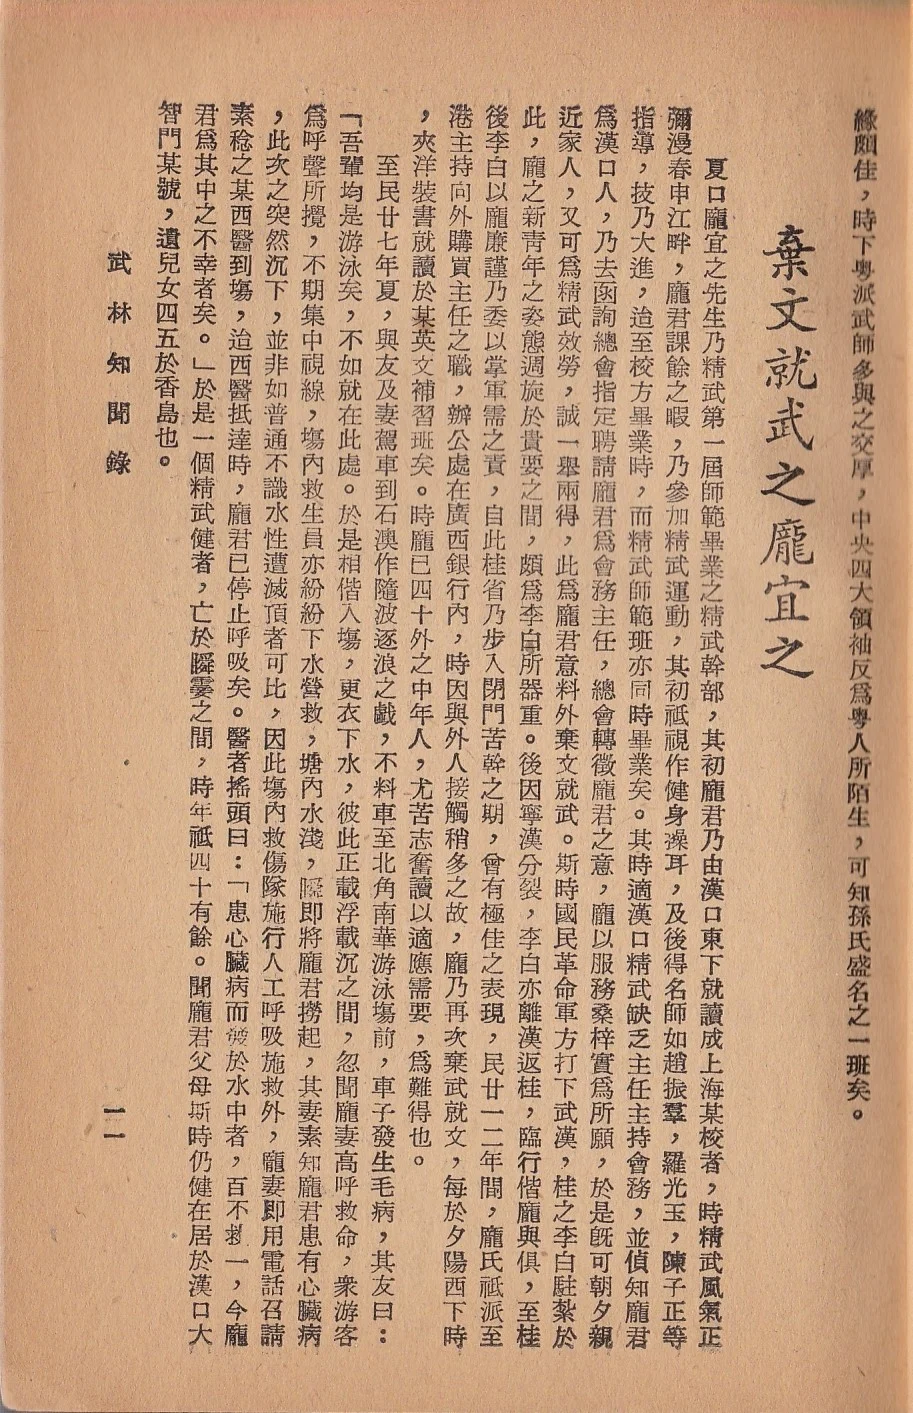 緣頗佳，時下粵派武師多與之交厚，中央四大領袖反爲粵人所陌生，可知孫氏盛名之一班矣。
棄文就武之龐宜之
夏口龐宜之先生乃精武第一屆師範畢業之精武幹部，其初龐君乃由漢口東下就讀成上海某校者，時精武風氣正
彌漫春申江畔，龐君課餘之暇，乃參加精武運動，其初祇視作健身操耳，及後得名師如趙振羣，羅光玉，陳子正等
指導，技乃大進，迨至校方畢業時，而精武師範班亦同時畢業矣。其時適漢口精武缺乏主任主持會務，並偵知龐君
爲漢口人，乃去函詢總會指定聘請龐君爲會務主任，總會轉徵龐君之意，龐以服務桑梓實爲所願，於是旣可朝夕親
近家人，又可爲精武效勞，誠一舉兩得，此爲龐君意料外棄文就武。斯時國民革命軍方打下武漢，桂之李白駐紮於
此，龐之新靑年之姿態週旋於貴要之間，頗爲李白所器重。後因寧漢分裂，李白亦離漢返桂，臨行偕龐與俱，至桂
後李白以龐廉謹乃委以掌軍需之責，自此桂省乃步入閉門苦幹之期，曾有極佳之表現，民廿一二年間，龐氏祇派至
港主持向外購買主任之職，辦公處在廣西銀行內，時因與外人接觸稍多之故，龐乃再次棄武就文，每於夕陽西下時
，夾洋裝書就讀於某英文補習班矣。時龐已四十外之中年人，尤苦志奮讀以適應需要，爲難得也。
至民廿七年夏，與友及妻駕車到石澳作隨波逐浪之戲，不料車至北角南華游泳塲前，車子發生毛病，其友曰：
「吾輩均是游泳矣，不如就在此處。於是相偕入塲，更衣下水，彼此正載浮載沉之間，忽聞龐妻高呼救命，衆游客
爲呼聲所攪，不期集中視線，塲內救生員亦紛紛下水營救，塘內水淺，瞬即將龐君撈起，其妻素知龐君患有心臟病
，此次之突然沉下，並非如普通不識水性遭滅頂者可比，因此塲內救傷隊施行人工呼吸施救外，龐妻即用電話召請
素稔之某西醫到塲，迨西醫抵達時，龐君已停止呼吸矣。醫者搖頭曰：「患心臟病而發於水中者，百不救一，今龐
君爲其中之不幸者矣。」於是一個精武健者，亡於瞬霎之間，時年祇四十有餘。聞龐君父母斯時仍健在居於漢口大
智門某號，遺兒女四五於香島也。
武林知聞錄
一一